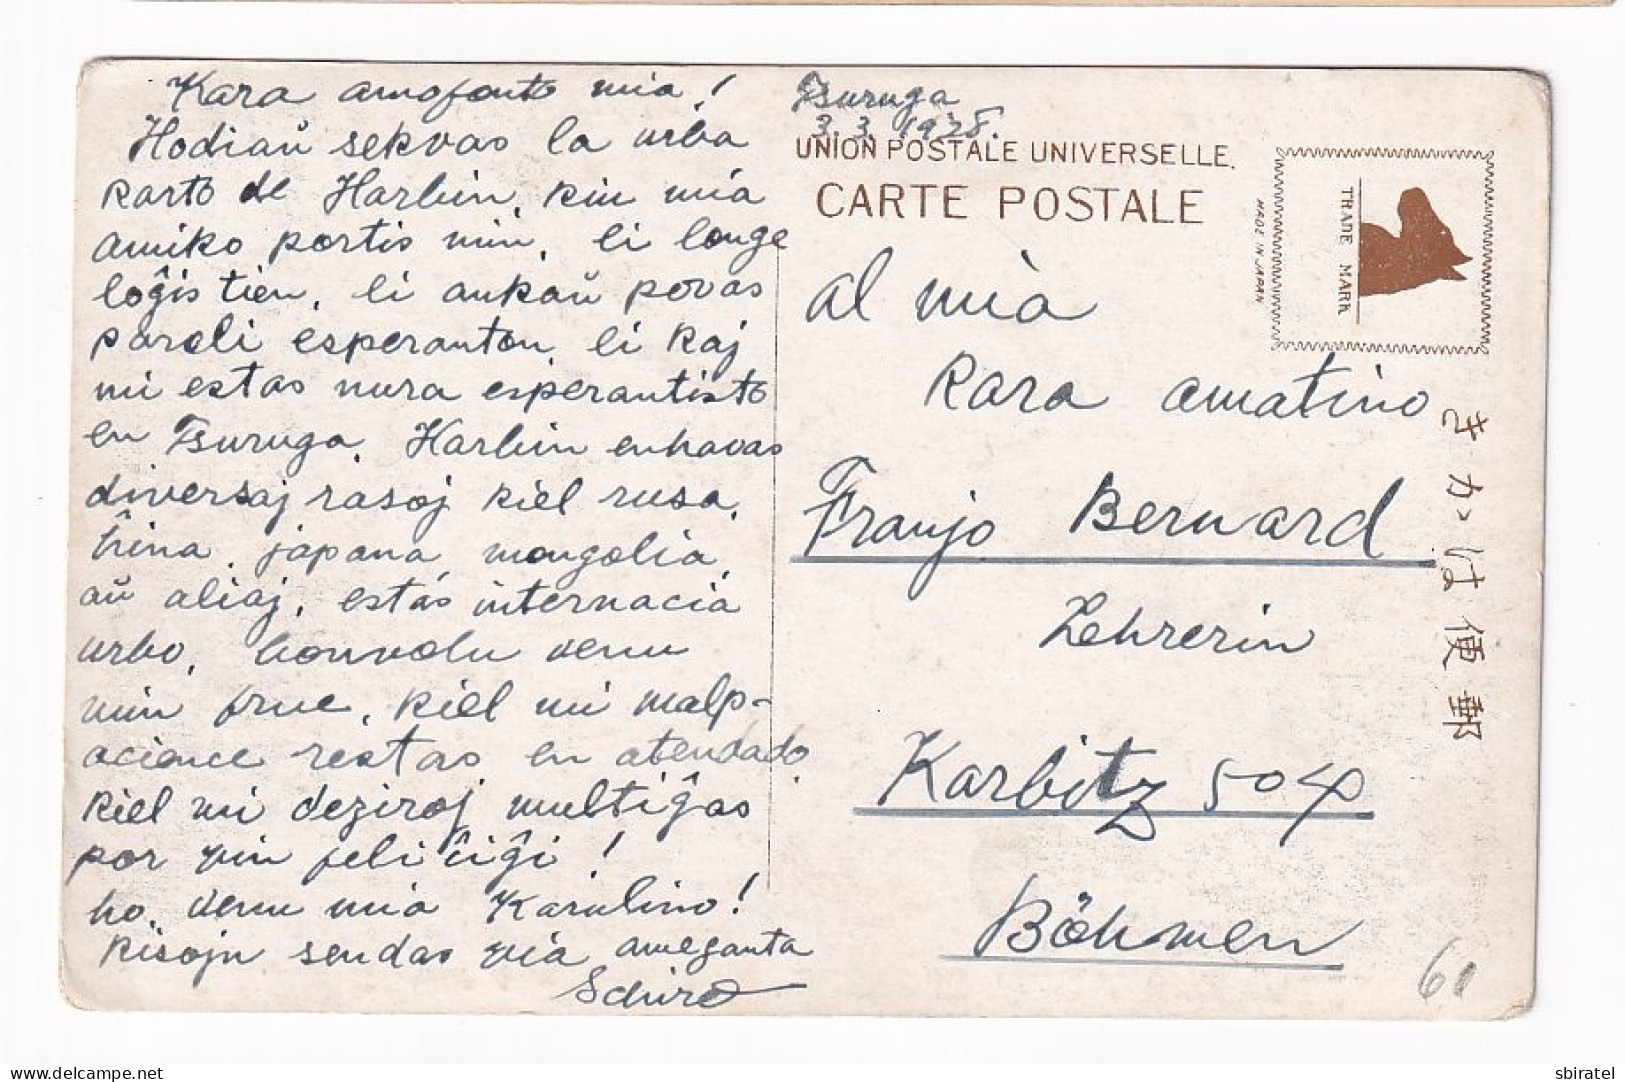 Kara amofonto mia!
Hodiaŭ sekvas la urba
karto de Harbin, kiu mia
amiko portis min, li longe
loĝis tien, li ankaŭ povas
paroli esperanton, li kaj
mi estas nura esperantisto
en Tsuruga. Harbin enhavas
diversaj rasoj kiel rusa,
ĥina, japana, mongolia,
aŭ aliaj, estas internacia
urbo, bonvolu venu
min frue, kiel mi malp-
acience restas en atendado,
kiel mi deziroj multiĝas
por vin feliĉiĝi!
ho, venu mia Karulino!
Kisojn sendas via ameganta
Schiro
Tsuruga
3. 3. 1928.
UNION POSTALE UNIVERSELLE.
CARTE POSTALE
TRADE MARK
MADE IN JAPAN
al mia
kara amatino
Franjo Bernard
Lehrerin
Karbitz 504
Böhmen
きがは便郵
60
sbiratel
delcampe.net